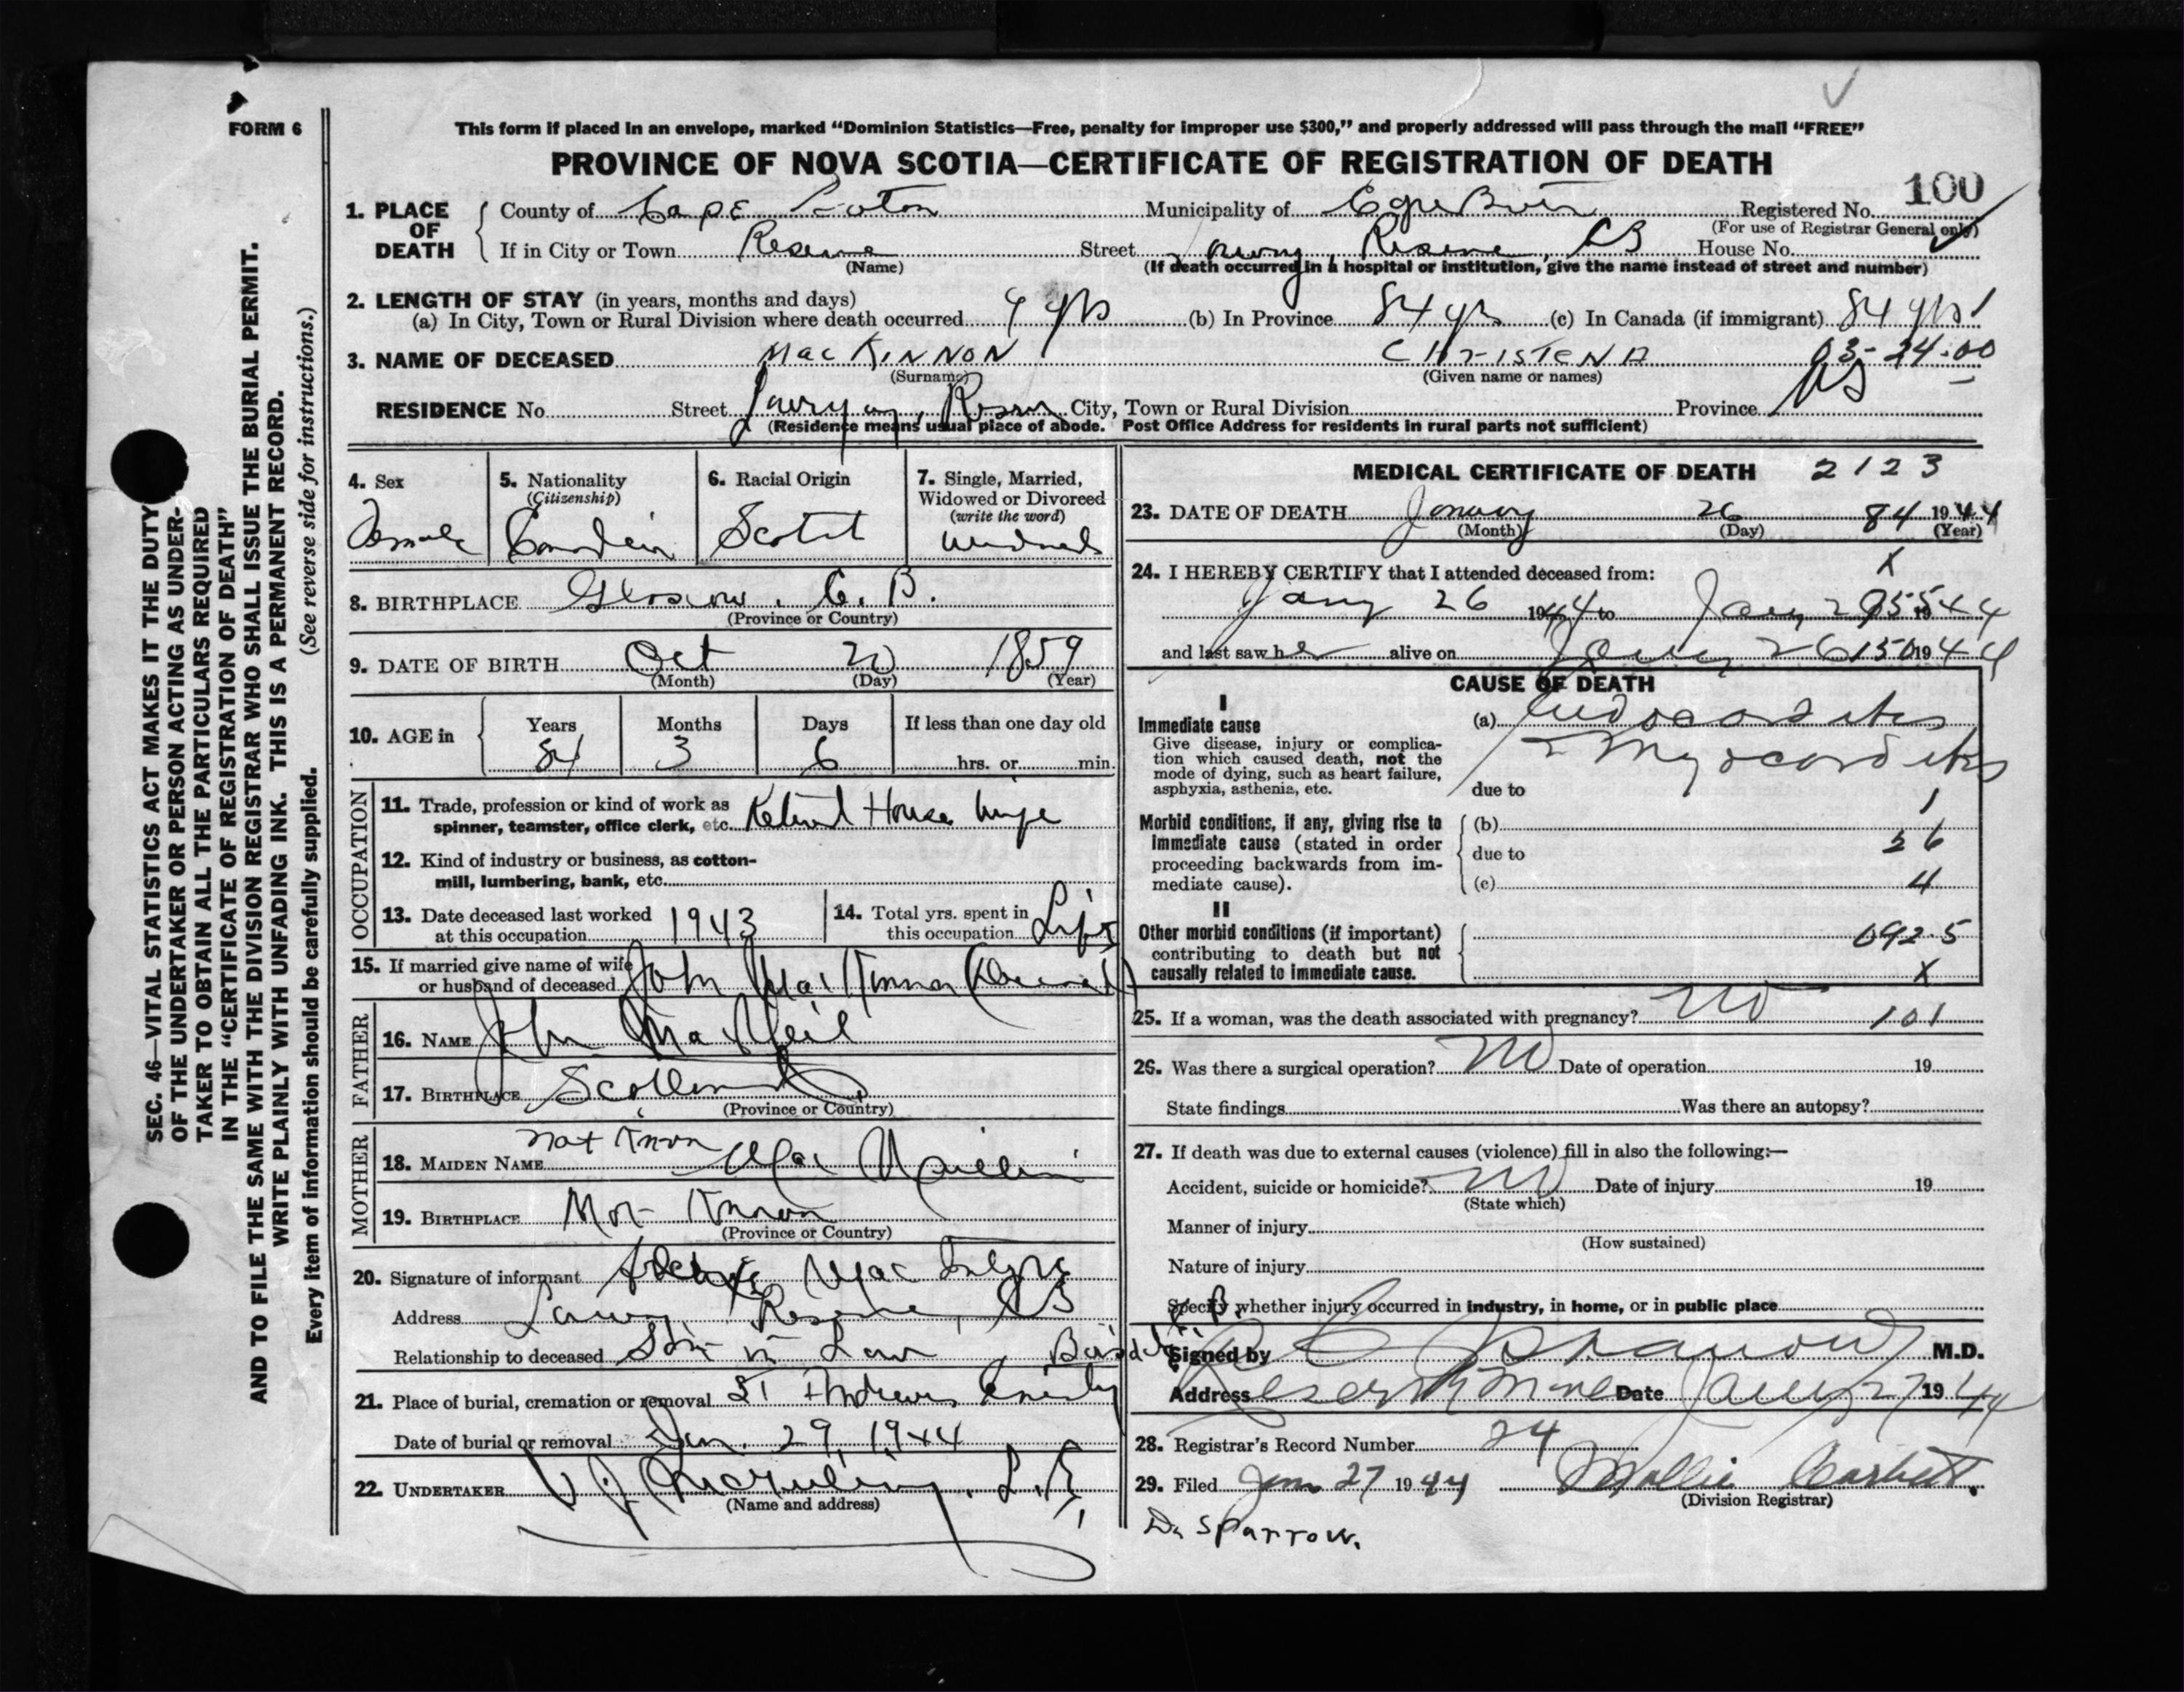 FORM 6
This form if placed in an envelope, marked “Dominion Statistics—Free, penalty for improper use $300,” and properly addressed will pass through the mail “FREE”
PROVINCE OF NOVA SCOTIA—CERTIFICATE OF REGISTRATION OF DEATH
100
1. PLACE OF DEATH
County of Cape Breton Municipality of Cape Breton Registered No.
(For use of Registrar General only)
If in City or Town Reserve Street Reserve, CB House No.
(Name) (If death occurred in a hospital or institution, give the name instead of street and number)
2. LENGTH OF STAY (in years, months and days)
(a) In City, Town or Rural Division where death occurred 9 yrs (b) In Province 84 yrs (c) In Canada (if immigrant) 84 yrs
3. NAME OF DECEASED MacKINNON CHRISTENA 03-24-00
(Surname) (Given name or names)
RESIDENCE No Street City, Town or Rural Division Province NS
(Residence means usual place of abode. Post Office Address for residents in rural parts not sufficient)
4. Sex
Female
5. Nationality
(Citizenship)
Canadian
6. Racial Origin
Scotch
7. Single, Married,
Widowed or Divorced
(write the word)
Widowed
8. BIRTHPLACE C. B.
(Province or Country)
9. DATE OF BIRTH Oct 20 1859
(Month) (Day) (Year)
10. AGE in
Years Months Days If less than one day old
84 3 6 hrs. or min.
OCCUPATION
11. Trade, profession or kind of work as
spinner, teamster, office clerk, etc. Retired House Wife
12. Kind of industry or business, as cotton-
mill, lumbering, bank, etc.
13. Date deceased last worked
at this occupation 1943
14. Total yrs. spent in
this occupation Life
15. If married give name of wife
or husband of deceased John MacKinnon (Deceased)
FATHER
16. NAME John MacNeil
17. BIRTHPLACE Scotland
(Province or Country)
MOTHER
18. MAIDEN NAME Not Known Mac
19. BIRTHPLACE Not Known
(Province or Country)
20. Signature of informant Archie MacIntyre
Address Reserve, CB
Relationship to deceased Son in Law
21. Place of burial, cremation or removal St Andrews Cemetery
Date of burial or removal Jan. 29, 1944
22. UNDERTAKER
(Name and address)
MEDICAL CERTIFICATE OF DEATH 2123
23. DATE OF DEATH January 26 84 1944
(Month) (Day) (Year)
24. I HEREBY CERTIFY that I attended deceased from: X
Jany 26 1944 to Jany
and last saw her alive on Jany 26 150 1944
CAUSE OF DEATH
I
Immediate cause (a) Endocarditis
Give disease, injury or complica-
tion which caused death, not the
mode of dying, such as heart failure,
asphyxia, asthenia, etc.
Myocarditis
due to
1
Morbid conditions, if any, giving rise to
immediate cause (stated in order
proceeding backwards from im-
mediate cause).
(b)
due to 26
(c) 4
II
Other morbid conditions (if important)
contributing to death but not
causally related to immediate cause.
092.5
X
25. If a woman, was the death associated with pregnancy? No 101
26. Was there a surgical operation? No Date of operation 19
State findings Was there an autopsy?
27. If death was due to external causes (violence) fill in also the following:—
Accident, suicide or homicide? No Date of injury 19
(State which)
Manner of injury
(How sustained)
Nature of injury
Specify whether injury occurred in industry, in home, or in public place
Signed by Sparrow M.D.
Address Reserve Mines Date Jany 27 1944
28. Registrar's Record Number 24
29. Filed Jan 27 1944 Mollie Corbett.
(Division Registrar)
Dr Sparrow.
SEC. 46—VITAL STATISTICS ACT MAKES IT THE DUTY
OF THE UNDERTAKER OR PERSON ACTING AS UNDER-
TAKER TO OBTAIN ALL THE PARTICULARS REQUIRED
IN THE “CERTIFICATE OF REGISTRATION OF DEATH”
AND TO FILE THE SAME WITH THE DIVISION REGISTRAR WHO SHALL ISSUE THE BURIAL PERMIT.
WRITE PLAINLY WITH UNFADING INK. THIS IS A PERMANENT RECORD.
Every item of information should be carefully supplied. (See reverse side for instructions.)